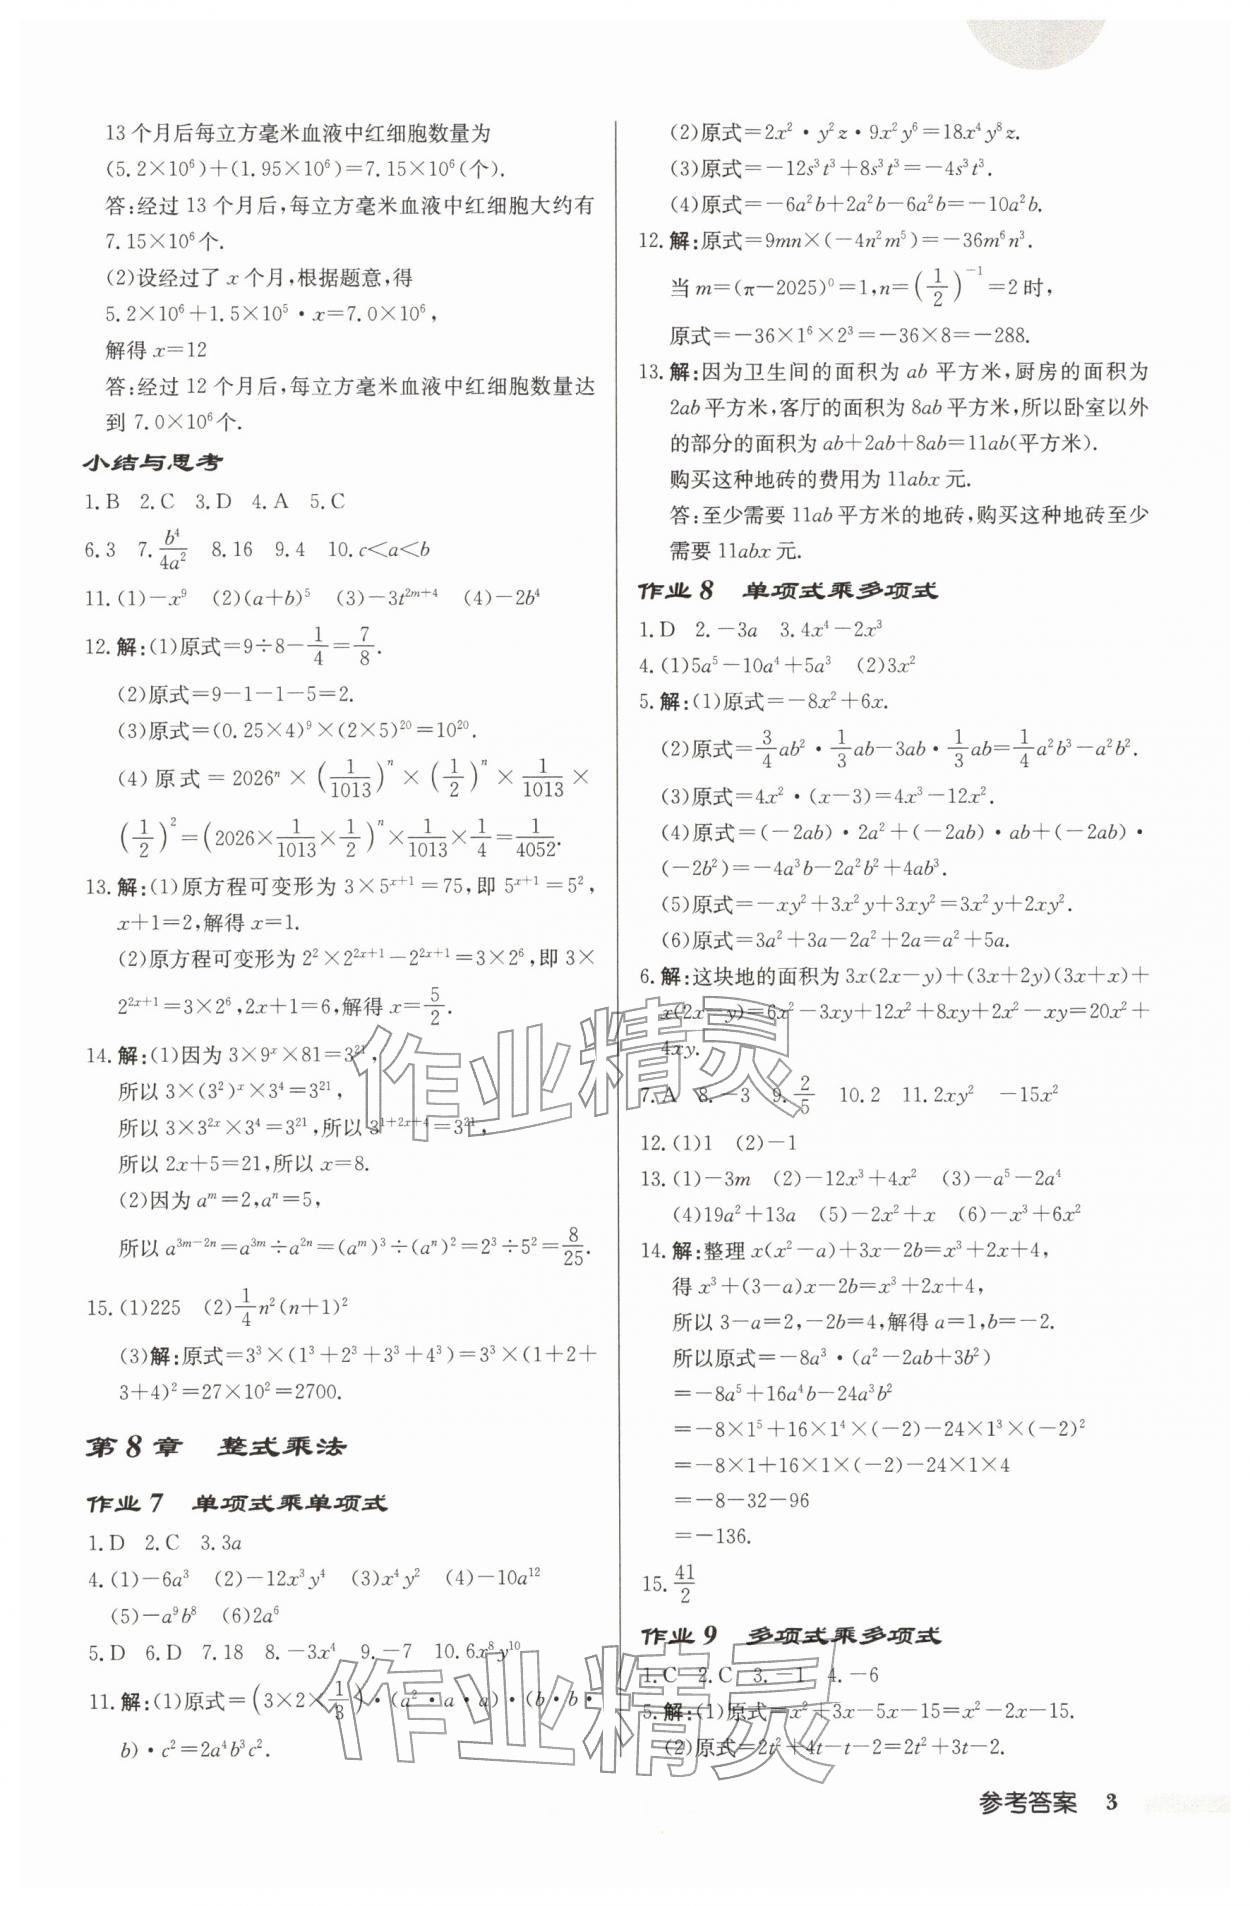 13个月后每立方毫米血液中红细胞数量为
(5.2×10⁶)+(1.95×10⁶)=7.15×10⁶(个).
答:经过13个月后,每立方毫米血液中红细胞大约有
7.15×10⁶个.
(2)设经过了x个月,根据题意,得
5.2×10⁶+1.5×10⁵·x=7.0×10⁶,
解得x=12
答:经过12个月后,每立方毫米血液中红细胞数量达
到7.0×10⁶个.
小结与思考
1.B 2.C 3.D 4.A 5.C
6.3 7.b⁴/4a² 8.16 9.4 10.c<a<b
11.(1)-x⁹ (2)(a+b)⁵ (3)-3t^{2m+4} (4)-2b⁴
12.解:(1)原式=9÷8-1/4=7/8.
(2)原式=9-1-1-5=2.
(3)原式=(0.25×4)⁹×(2×5)²⁰=10²⁰.
(4)原式=2026ⁿ×(1/1013)ⁿ×(1/2)ⁿ×1/1013×
(1/2)²=(2026×1/1013×1/2)ⁿ×1/1013×1/4=1/4052.
13.解:(1)原方程可变形为3×5^{x+1}=75,即5^{x+1}=5²,
x+1=2,解得x=1.
(2)原方程可变形为2²×2^{2x+1}-2^{2x+1}=3×2⁶,即3×
2^{2x+1}=3×2⁶,2x+1=6,解得x=5/2.
14.解:(1)因为3×9ˣ×81=3²¹,
所以3×(3²)ˣ×3⁴=3²¹,
所以3×3^{2x}×3⁴=3²¹,所以3^{1+2x+4}=3²¹,
所以2x+5=21,所以x=8.
(2)因为aᵐ=2,aⁿ=5,
所以a^{3m-2n}=a^{3m}÷a^{2n}=(aᵐ)³÷(aⁿ)²=2³÷5²=8/25.
15.(1)225 (2)1/4n²(n+1)²
(3)解:原式=3³×(1³+2³+3³+4³)=3³×(1+2+
3+4)²=27×10²=2700.
第8章 整式乘法
作业7 单项式乘单项式
1.D 2.C 3.3a
4.(1)-6a³ (2)-12x³y⁴ (3)x⁴y² (4)-10a¹²
(5)-a⁹b⁸ (6)2a⁶
5.D 6.D 7.18 8.-3x⁴ 9.-7 10.6x⁸y¹⁰
11.解:(1)原式=(3×2×1/3)·(a²·a·a)·(b·b·
b)·c²=2a⁴b³c².
(2)原式=2x²·y²z·9x²y⁶=18x⁴y⁸z.
(3)原式=-12s³t³+8s³t³=-4s³t³.
(4)原式=-6a²b+2a²b-6a²b=-10a²b.
12.解:原式=9mn×(-4n²m⁵)=-36m⁶n³.
当m=(π-2025)⁰=1,n=(1/2)⁻¹=2时,
原式=-36×1⁶×2³=-36×8=-288.
13.解:因为卫生间的面积为ab平方米,厨房的面积为
2ab平方米,客厅的面积为8ab平方米,所以卧室以外
的部分的面积为ab+2ab+8ab=11ab(平方米).
购买这种地砖的费用为11abx元.
答:至少需要11ab平方米的地砖,购买这种地砖至少
需要11abx元.
作业8 单项式乘多项式
1.D 2.-3a 3.4x⁴-2x³
4.(1)5a⁵-10a⁴+5a³ (2)3x²
5.解:(1)原式=-8x²+6x.
(2)原式=3/4ab²·1/3ab-3ab·1/3ab=1/4a²b³-a²b².
(3)原式=4x²·(x-3)=4x³-12x².
(4)原式=(-2ab)·2a²+(-2ab)·ab+(-2ab)·
(-2b²)=-4a³b-2a²b²+4ab³.
(5)原式=-xy²+3x²y+3xy²=3x²y+2xy².
(6)原式=3a²+3a-2a²+2a=a²+5a.
6.解:这块地的面积为3x(2x-y)+(3x+2y)(3x+x)+
x(2x-y)=6x²-3xy+12x²+8xy+2x²-xy=20x²+
4xy.
7.A 8.-3 9.2/5 10.2 11.2xy² -15x²
12.(1)1 (2)-1
13.(1)-3m (2)-12x³+4x² (3)-a⁵-2a⁴
(4)19a²+13a (5)-2x²+x (6)-x³+6x²
14.解:整理x(x²-a)+3x-2b=x³+2x+4,
得x³+(3-a)x-2b=x³+2x+4,
所以3-a=2,-2b=4,解得a=1,b=-2.
所以原式=-8a³·(a²-2ab+3b²)
=-8a⁵+16a⁴b-24a³b²
=-8×1⁵+16×1⁴×(-2)-24×1³×(-2)²
=-8×1+16×1×(-2)-24×1×4
=-8-32-96
=-136.
15.41/2
作业9 多项式乘多项式
1.C 2.C 3.-1 4.-6
5.解:(1)原式=x²+3x-5x-15=x²-2x-15.
(2)原式=2t²+4t-t-2=2t²+3t-2.
参考答案 3
作业精灵
作业精灵